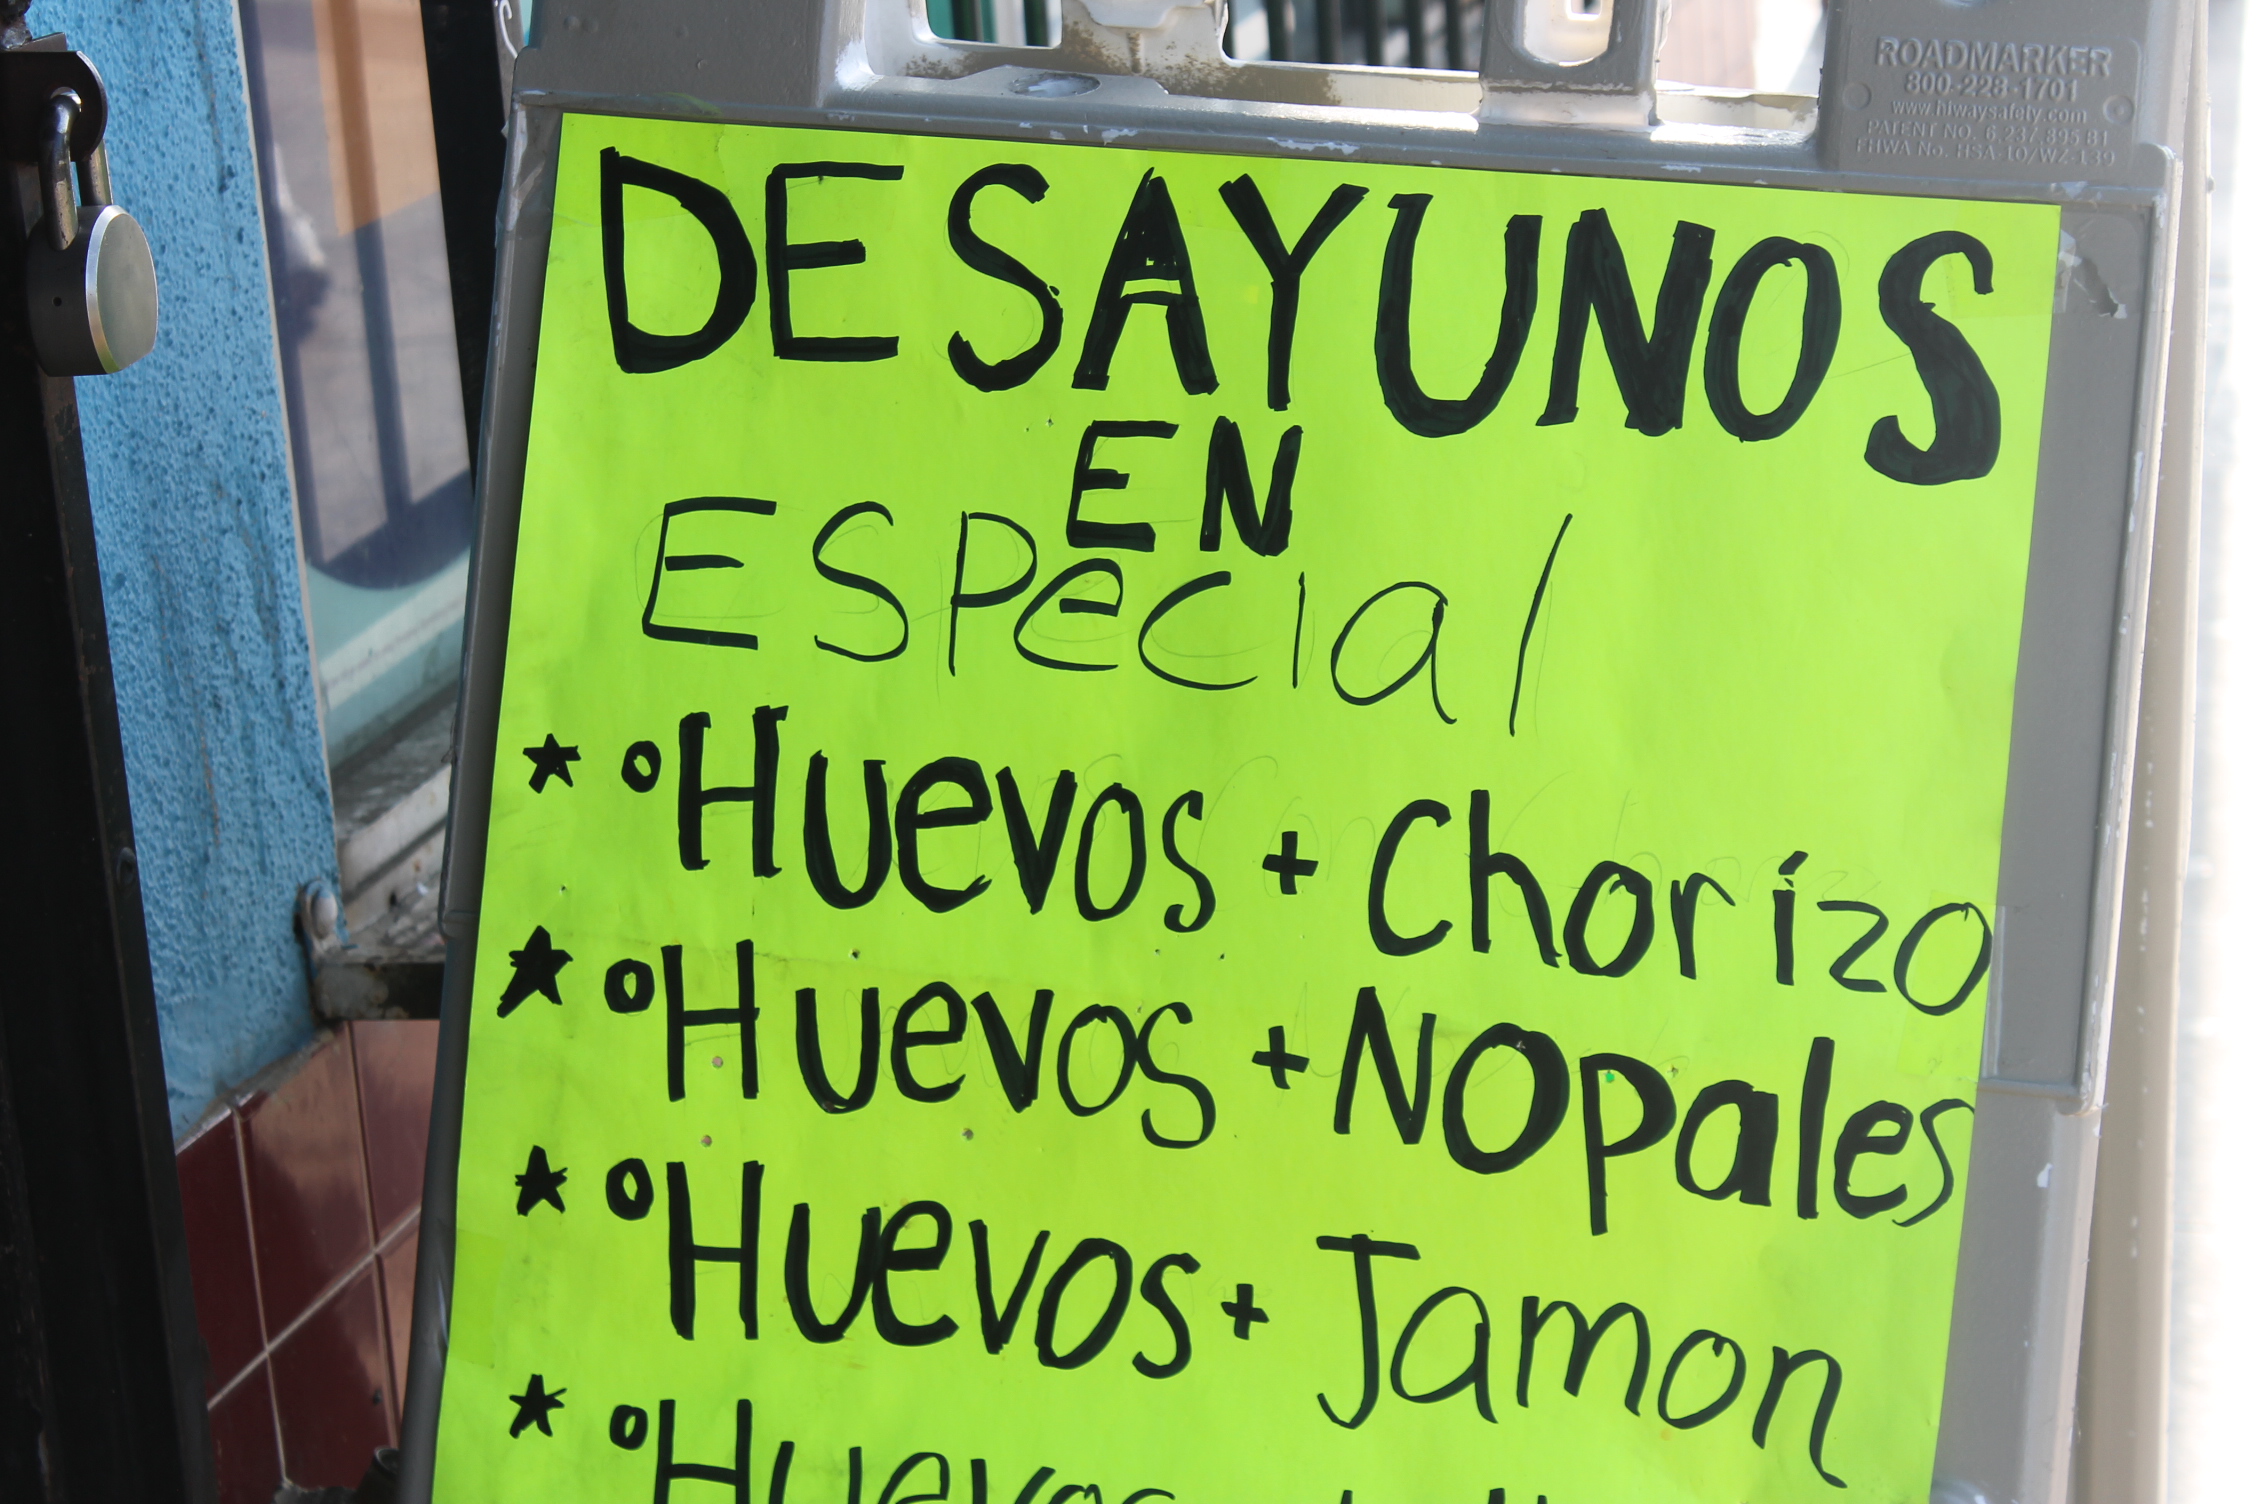 ROADMARKER
800-228-1701
www.hiwaysafety.com
PATENT NO. 6,237,895 B1
FHWA No. HSA-10/WZ-139
DESAYUNOS
EN
ESPecial
* ° Huevos + Chorizo
* ° Huevos + NOpales
* ° Huevos + Jamon
* ° Huevos